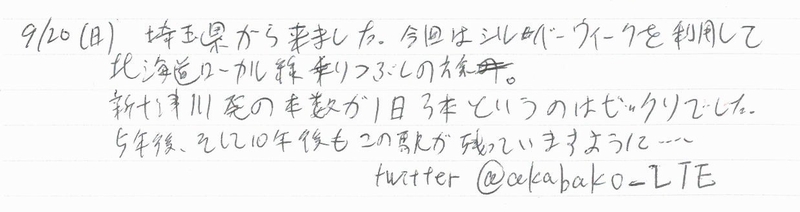 9/20(日) 埼玉県から来ました。今回はシルバーウィークを利用して
北海道ローカル線乗りつぶしの旅。
新十津川発の本数が1日3本というのはビックリでした。
5年後、そして10年後もこの駅が残っていますように……
twitter @akabako_LTE